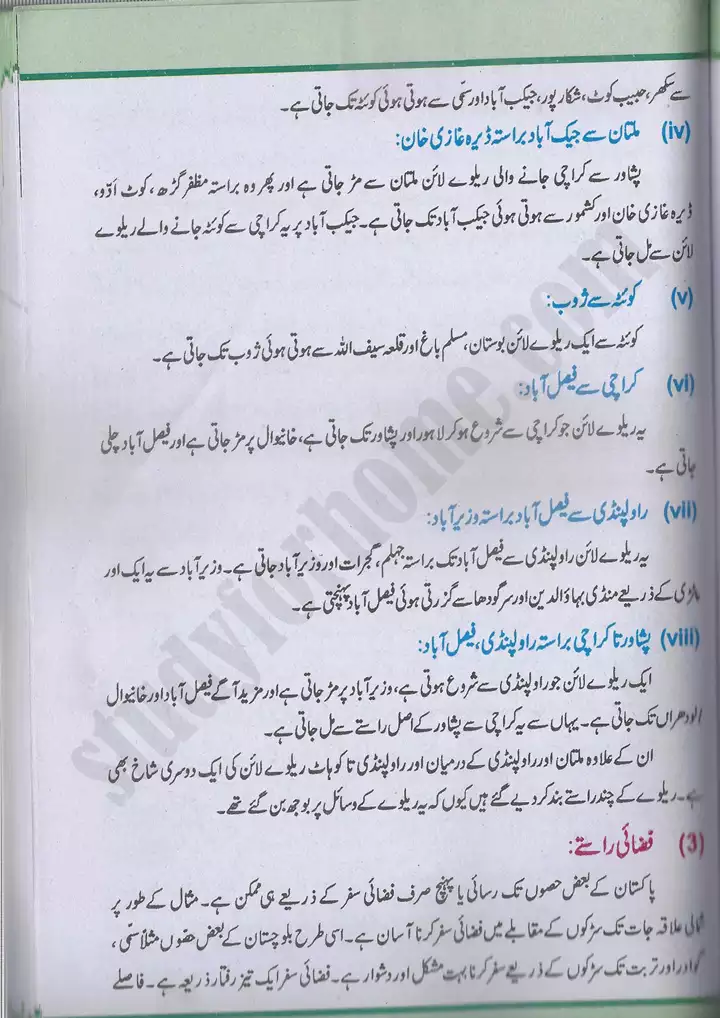 سے سکھر، حبیب کوٹ، شکارپور، جیکب آباد اور سبّی سے ہوتی ہوئی کوئٹہ تک جاتی ہے۔
(iv) ملتان سے جیک آباد براستہ ڈیرہ غازی خان:
پشاور سے کراچی جانے والی ریلوے لائن ملتان سے مڑ جاتی ہے اور پھر وہ براستہ مظفر گڑھ، کوٹ ادّو،
ڈیرہ غازی خان اور کشمور سے ہوتی ہوئی جیکب آباد تک جاتی ہے۔ جیکب آباد پر یہ کراچی سے کوئٹہ جانے والے ریلوے
لائن سے مل جاتی ہے۔
(v) کوئٹہ سے ژوب:
کوئٹہ سے ایک ریلوے لائن بوستان، مسلم باغ اور قلعہ سیف اللہ سے ہوتی ہوئی ژوب تک جاتی ہے۔
(vi) کراچی سے فیصل آباد:
یہ ریلوے لائن جو کراچی سے شروع ہو کر لاہور اور پشاور تک جاتی ہے، خانیوال پر مڑ جاتی ہے اور فیصل آباد چلی
جاتی ہے۔
(vii) راولپنڈی سے فیصل آباد براستہ وزیرآباد:
یہ ریلوے لائن راولپنڈی سے فیصل آباد تک براستہ جہلم، گجرات اور وزیر آباد جاتی ہے۔ وزیرآباد سے یہ ایک اور
کے ذریعے منڈی بہاؤالدین اور سرگودھا سے گزرتی ہوئی فیصل آباد پہنچتی ہے۔
(viii) پشاور تا کراچی براستہ راولپنڈی، فیصل آباد:
ایک ریلوے لائن جو راولپنڈی سے شروع ہوتی ہے، وزیرآباد پر مڑ جاتی ہے اور مزید آگے فیصل آباد اور خانیوال
تک جاتی ہے۔ یہاں سے یہ کراچی سے پشاور کے اصل راستے سے مل جاتی ہے۔
ان کے علاوہ ملتان اور راولپنڈی کے درمیان اور راولپنڈی تا کوہاٹ ریلوے لائن کی ایک دوسری شاخ بھی
ہے۔ ریلوے کے چند راستے بند کر دیے گئے ہیں کیوں کہ یہ ریلوے کے وسائل پر بوجھ بن گئے تھے۔
(3) فضائی راستے:
پاکستان کے بعض حصوں تک رسائی یا پہنچ صرف فضائی سفر کے ذریعے ہی ممکن ہے۔ مثال کے طور پر
علاقہ جات تک سڑکوں کے مقابلے میں فضائی سفر کرنا آسان ہے۔ اسی طرح بلوچستان کے بعض حصّوں مثلاً سبّی،
گوادر اور تربت تک سڑکوں کے ذریعے سفر کرنا بہت مشکل اور دشوار ہے۔ فضائی سفر ایک تیز رفتار ذریعہ ہے۔ فاصلے
studyforhome.com